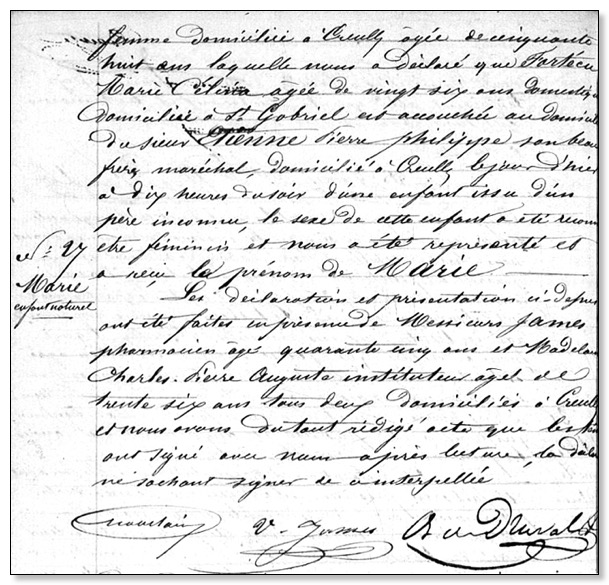 femme domiciliée à Creully âgée de cinquante
huit ans laquelle nous a déclaré que Forteau
Marie Célina agée de vingt six ans domestiq
domiciliée à St Gabriel est accouchée au domicil
du sieur Etienne Pierre philippe son beau
frère maréchal, domicilié à Creully le jour d'hier
à dix heures du soir d'une enfant issu d'un
père inconnu, le sexe de cette enfant a été reconn
être féminin et nous a été représenté et
a reçu le prénom de Marie
N: 27
Marie
enfant naturel
Les déclaration et présentation ci-dessus
ont été faites en présence de Messieurs James
pharmacien âgé quarante cinq ans et Madelain
Charles-Pierre Auguste instituteur âgé de
trente six ans tous deux domiciliés à Creully
et nous avons du tout rédigé acte que les tém
ont signé avec nous après lecture, la décla
ne sachant signer de ce interpellée
V. James